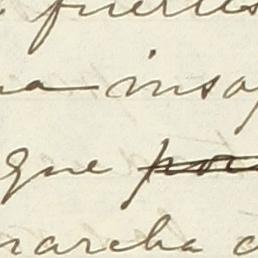 fuertes
na inso
que por
marcha